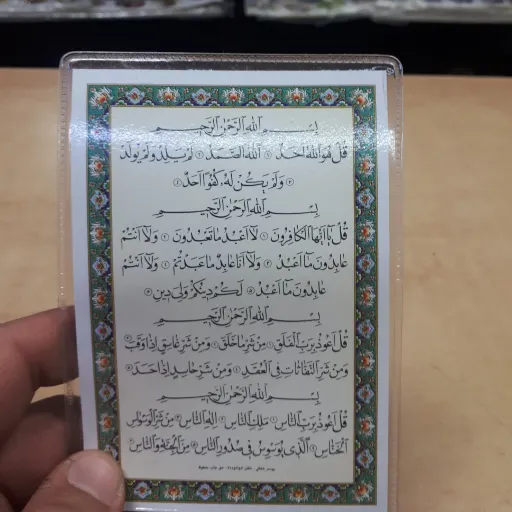 بِسْمِ اللهِ الرَّحْمٰنِ الرَّحِيمِ
قُلْ هُوَ اللهُ اَحَدٌ ﴿١﴾ اَللهُ الصَّمَدُ ﴿٢﴾ لَمْ يَلِدْ وَلَمْ يُولَدْ
﴿٣﴾ وَلَمْ يَكُنْ لَهُ كُفُوًا اَحَدٌ ﴿٤﴾
بِسْمِ اللهِ الرَّحْمٰنِ الرَّحِيمِ
قُلْ يَا اَيُّهَا الْكَافِرُونَ ﴿١﴾ لَا اَعْبُدُ مَا تَعْبُدُونَ ﴿٢﴾ وَلَا اَنْتُمْ
عَابِدُونَ مَا اَعْبُدُ ﴿٣﴾ وَلَا اَنَا عَابِدٌ مَا عَبَدْتُمْ ﴿٤﴾ وَلَا اَنْتُمْ
عَابِدُونَ مَا اَعْبُدُ ﴿٥﴾ لَكُمْ دِينُكُمْ وَلِيَ دِينِ ﴿٦﴾
بِسْمِ اللهِ الرَّحْمٰنِ الرَّحِيمِ
قُلْ اَعُوذُ بِرَبِّ الْفَلَقِ ﴿١﴾ مِنْ شَرِّ مَا خَلَقَ ﴿٢﴾ وَمِنْ شَرِّ غَاسِقٍ اِذَا وَقَبَ ﴿٣﴾
وَمِنْ شَرِّ النَّفَّاثَاتِ فِي الْعُقَدِ ﴿٤﴾ وَمِنْ شَرِّ حَاسِدٍ اِذَا حَسَدَ ﴿٥﴾
بِسْمِ اللهِ الرَّحْمٰنِ الرَّحِيمِ
قُلْ اَعُوذُ بِرَبِّ النَّاسِ ﴿١﴾ مَلِكِ النَّاسِ ﴿٢﴾ اِلٰهِ النَّاسِ ﴿٣﴾ مِنْ شَرِّ الْوَسْوَاسِ
الْخَنَّاسِ ﴿٤﴾ اَلَّذِي يُوَسْوِسُ فِي صُدُورِ النَّاسِ ﴿٥﴾ مِنَ الْجِنَّةِ وَالنَّاسِ